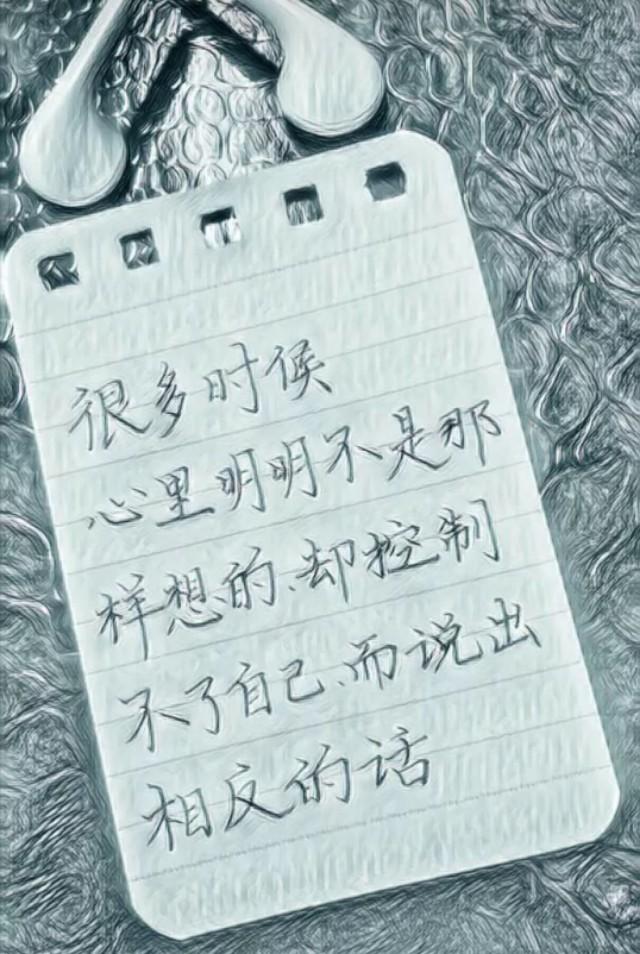 很多时候
心里明明不是那
样想的、却控制
不了自己、而说出
相反的话